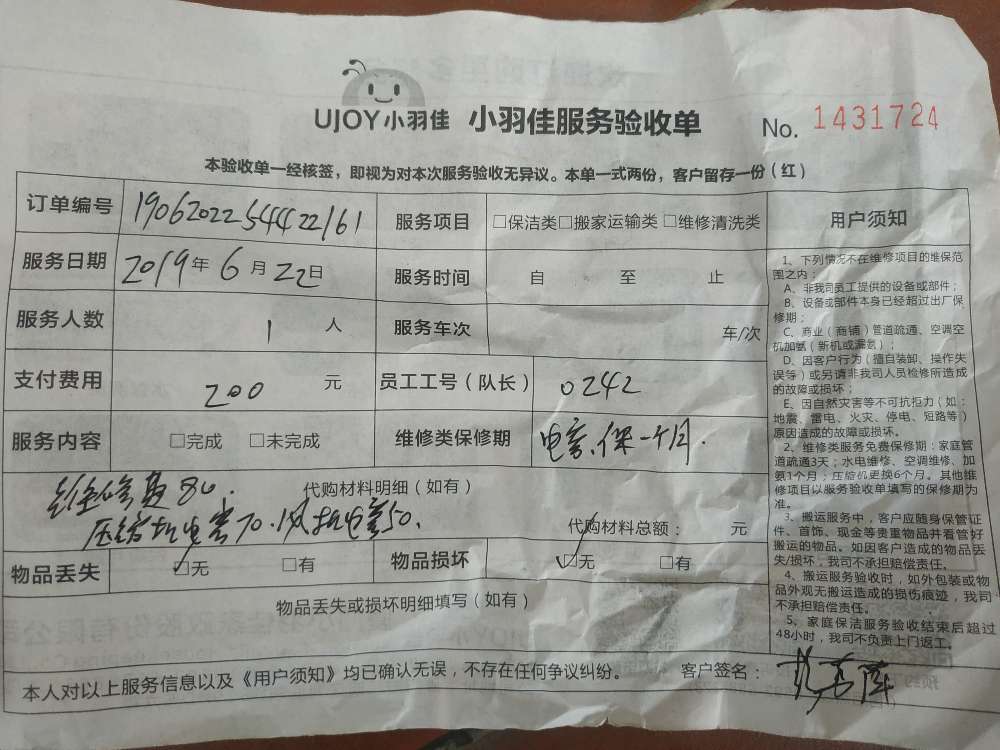 UJOY小羽佳 小羽佳服务验收单 No. 1431724
本验收单一经核签，即视为对本次服务验收无异议。本单一式两份，客户留存一份（红）
订单编号 19062022544422161 服务项目 □保洁类□搬家运输类□维修清洗类
服务日期 2019年6月22日 服务时间 自 至 止
服务人数 1人 服务车次 车/次
支付费用 200元 员工工号（队长） 0242
服务内容 □完成 □未完成 维修类保修期 电容.保一个月.
代购材料明细（如有）
维修费80.
压缩机电容70.风机电容50.
代购材料总额： 元
物品丢失 ☑无 □有 物品损坏 ☑无 □有
物品丢失或损坏明细填写（如有）
本人对以上服务信息以及《用户须知》均已确认无误，不存在任何争议纠纷。 客户签名：
用户须知
1、下列情况不在维修项目的维保范
围之内：
A、非我司员工提供的设备或部件；
B、设备或部件本身已经超过出厂保
修期；
C、商业（商铺）管道疏通、空调空
机加氨（新机或漏氨）；
D、因客户行为（擅自装卸、操作失
误等）或另请非我司人员检修所造成
的故障或损坏；
E、因自然灾害等不可抗拒力（如：
地震、雷电、火灾、停电、短路等）
原因造成的故障或损坏。
2、维修类服务免费保修期：家庭管
道疏通3天；水电维修、空调维修、加
氨1个月；压缩机更换6个月。其他维
修项目以服务验收单填写的保修期为
准。
3、搬运服务中，客户应随身保管证
件、首饰、现金等贵重物品并看管好
搬运的物品。如因客户造成的物品丢
失/损坏，我司不承担赔偿责任。
4、搬运服务验收时，如外包装或物
品外观无搬运造成的损伤痕迹，我司
不承担赔偿责任。
5、家庭保洁服务验收结束后超过
48小时，我司不负责上门返工。